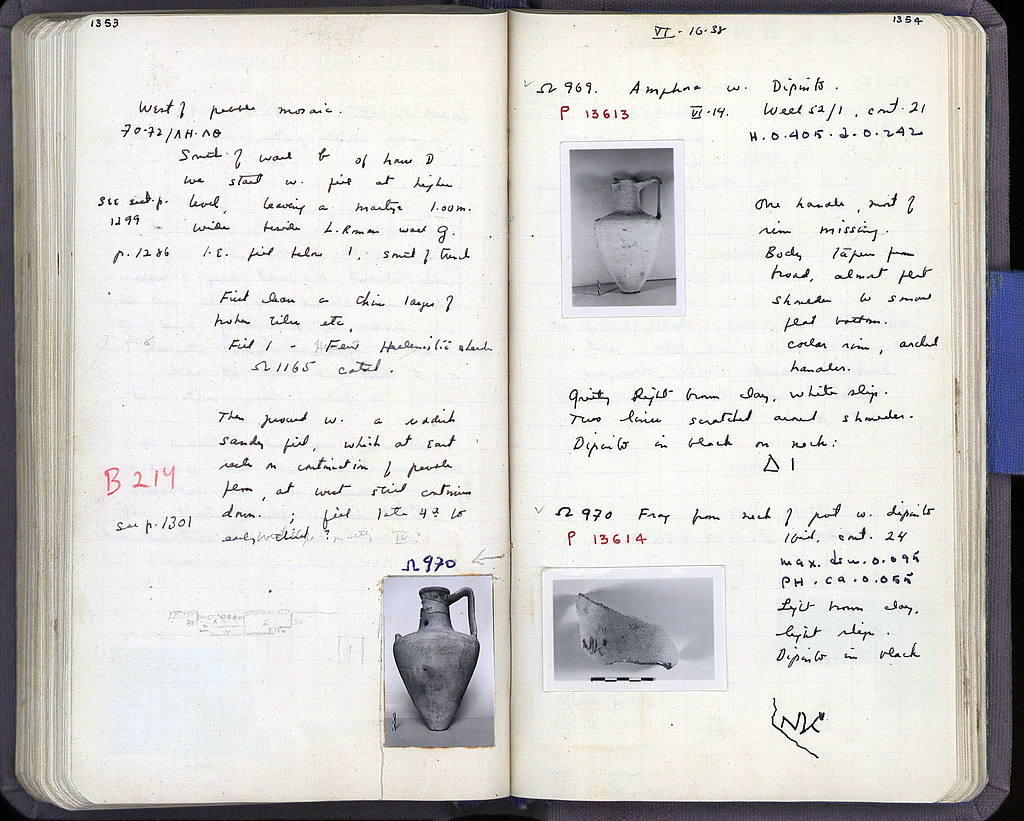 1353
West of pebble mosaic.
70-72/ΛΗ-ΛΘ
South of wall b of house D
we start w. fill at higher
see sect. p. 1299
level, leaving a martyr 1.00m.
wide beside L. Roman wall g.
p. 1286 I.E. fill below 1, south of trench
First clean a thin layer of
broken tiles etc.
Fill 1 - Few Hellenistic sherds
Ω 1165 coin.
Then proceed w. a reddish
sandy fill, which at East
rests on continuation of pebble
B 214
floor, at west still continues
see p. 1301
down. ; fill late 4th to
early
Ω 970
1354
VI-16-38
Ω 969. Amphora w. Dipinto.
P 13613 VI-14. Well 52/1, cont. 21
H.0.405-d-0.242
One handle, most of
rim missing.
Body tapers from
broad, almost flat
shoulder to small
flat bottom.
collar rim, arched
handles.
Gritty light brown clay, white slip.
Two lines scratched around shoulder.
Dipinto in black on neck:
Δ Ι
Ω 970 Frag from neck of pot w. dipinto
P 13614 Ibid, cont. 24
max. dim. 0.095
PH. ca. 0.055
Light brown clay,
light slip.
Dipinto in black